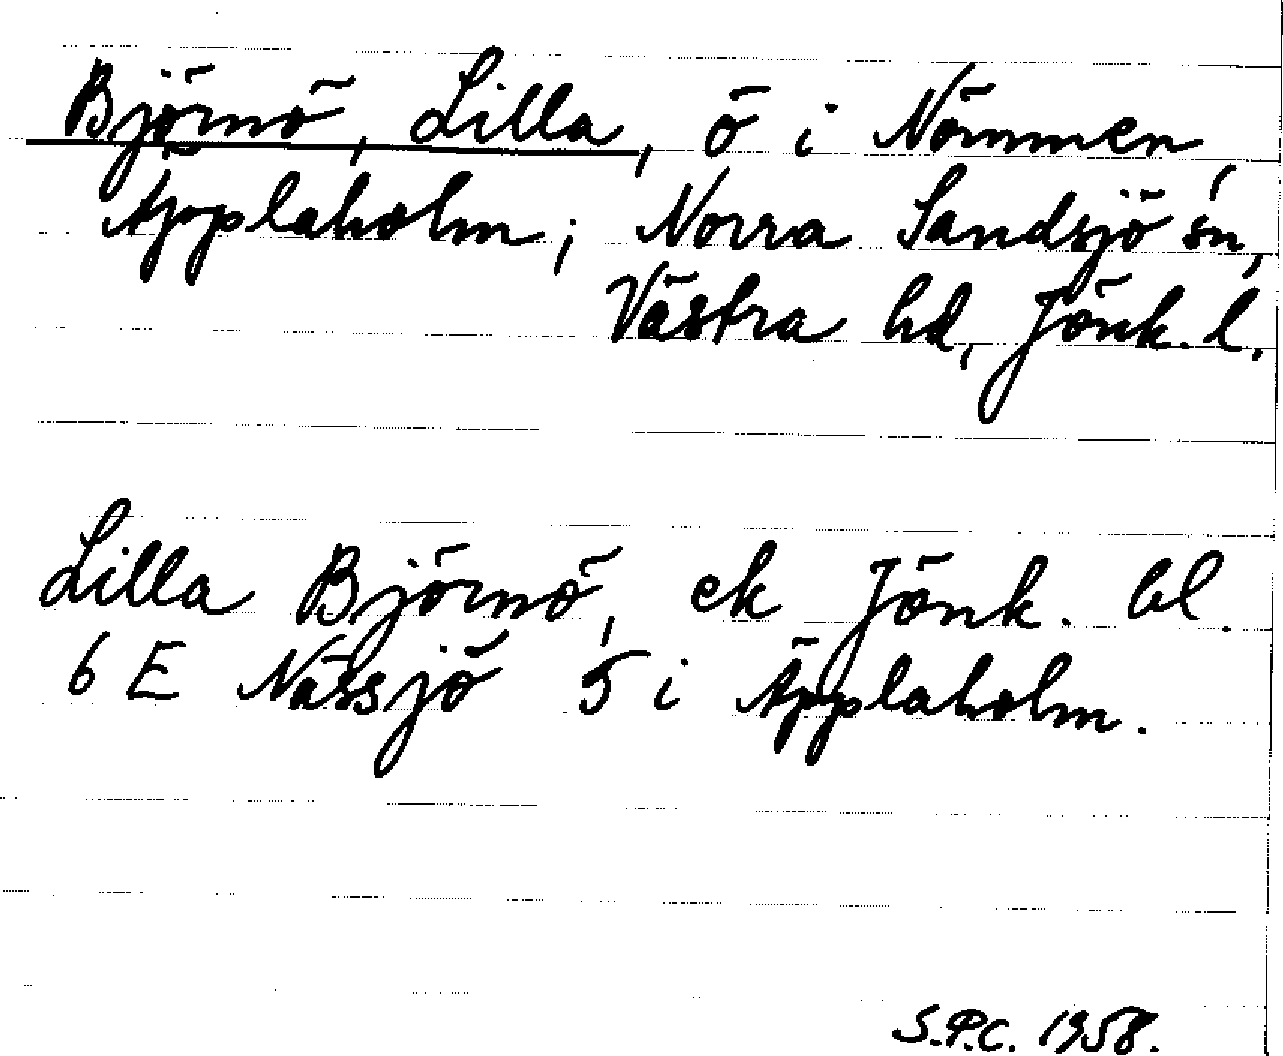 Björnö, Lilla, ö i Nömmen,
Äpplaholm; Norra Sandsjö sn,
Västra hd, Jönk. l.
Lilla Björnö, ek Jönk. bl.
6 E Nässjö 5 i Äpplaholm.
S.P.C. 1958.